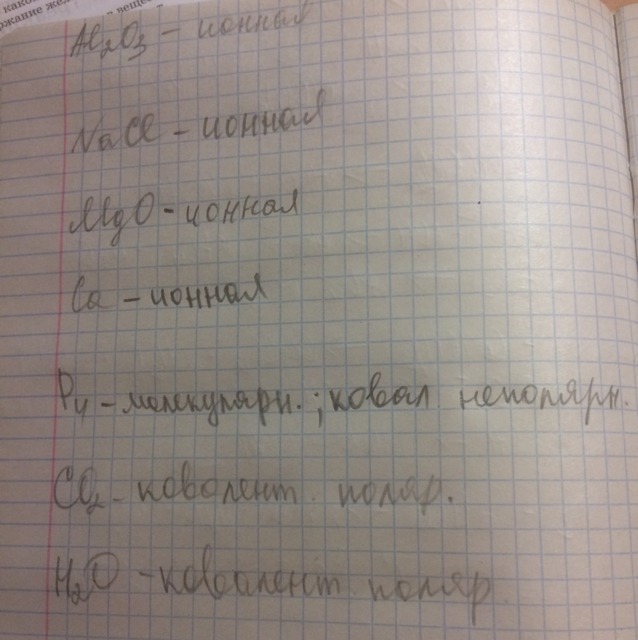 Al₂O₃ - ионная
NaCl - ионная
MgO - ионная
Ca - ионная
P₄ - молекулярн.; ковал неполярн.
CO₂ - ковалент. поляр.
H₂O - ковалент. поляр